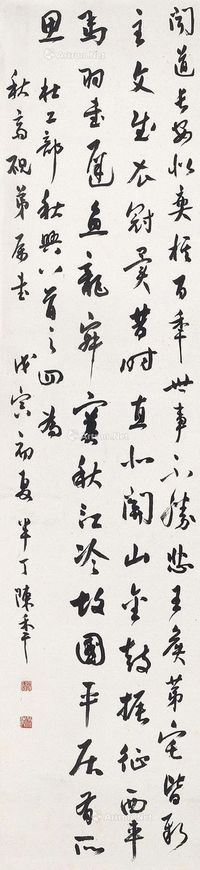 聞道長安似奕棋百年世事不勝悲王侯第宅皆新
主文武衣冠異昔時直北關山金鼓振征西車
馬羽書遲魚龍寂寞秋江冷故國平居有所
思 杜工部秋興八首之四為
秋高硯弟屬書 戊寅初夏 半丁陳年